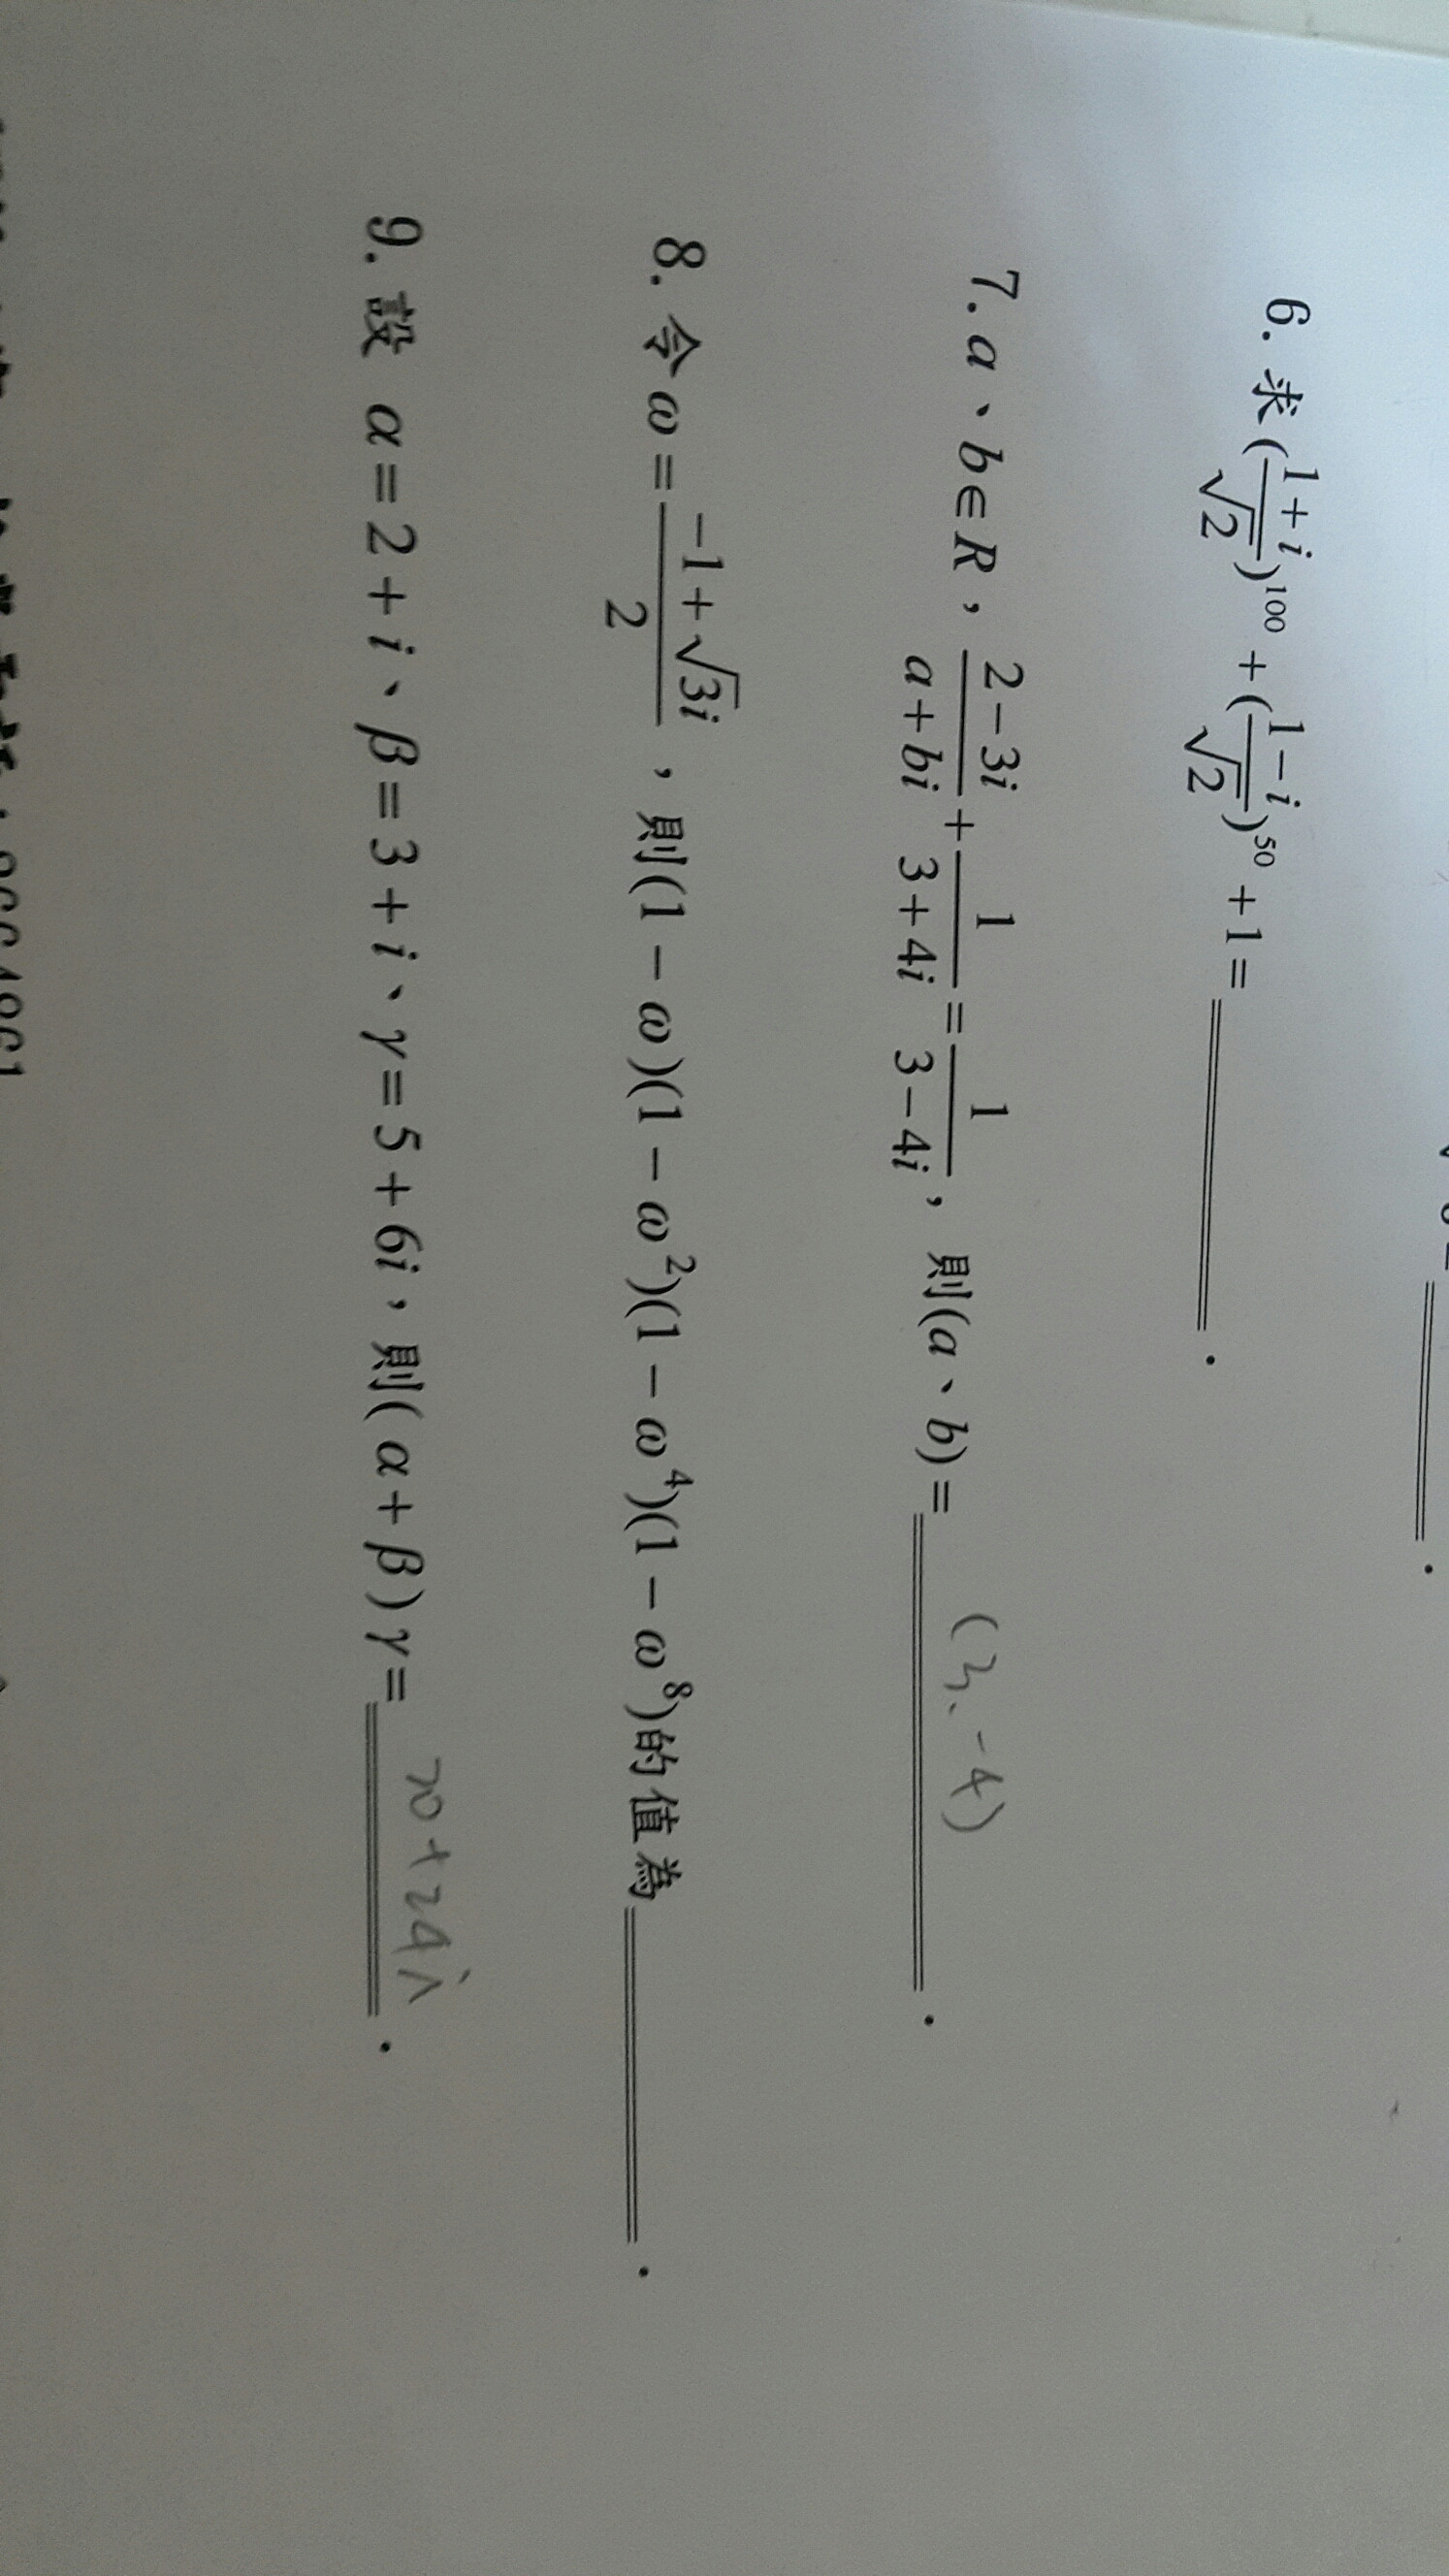 6. 求(\frac{1+i}{\sqrt{2}})^{100}+(\frac{1-i}{\sqrt{2}})^{50}+1=
7. a、b∈R，\frac{2-3i}{a+bi}+\frac{1}{3+4i}=\frac{1}{3-4i}，則(a、b)= (3、-4)
8. 令ω=\frac{-1+\sqrt{3}i}{2}，則(1-ω)(1-ω²)(1-ω⁴)(1-ω⁸)的值為
9. 設 α=2+i、β=3+i、γ=5+6i，則(α+β)γ= 70+24i